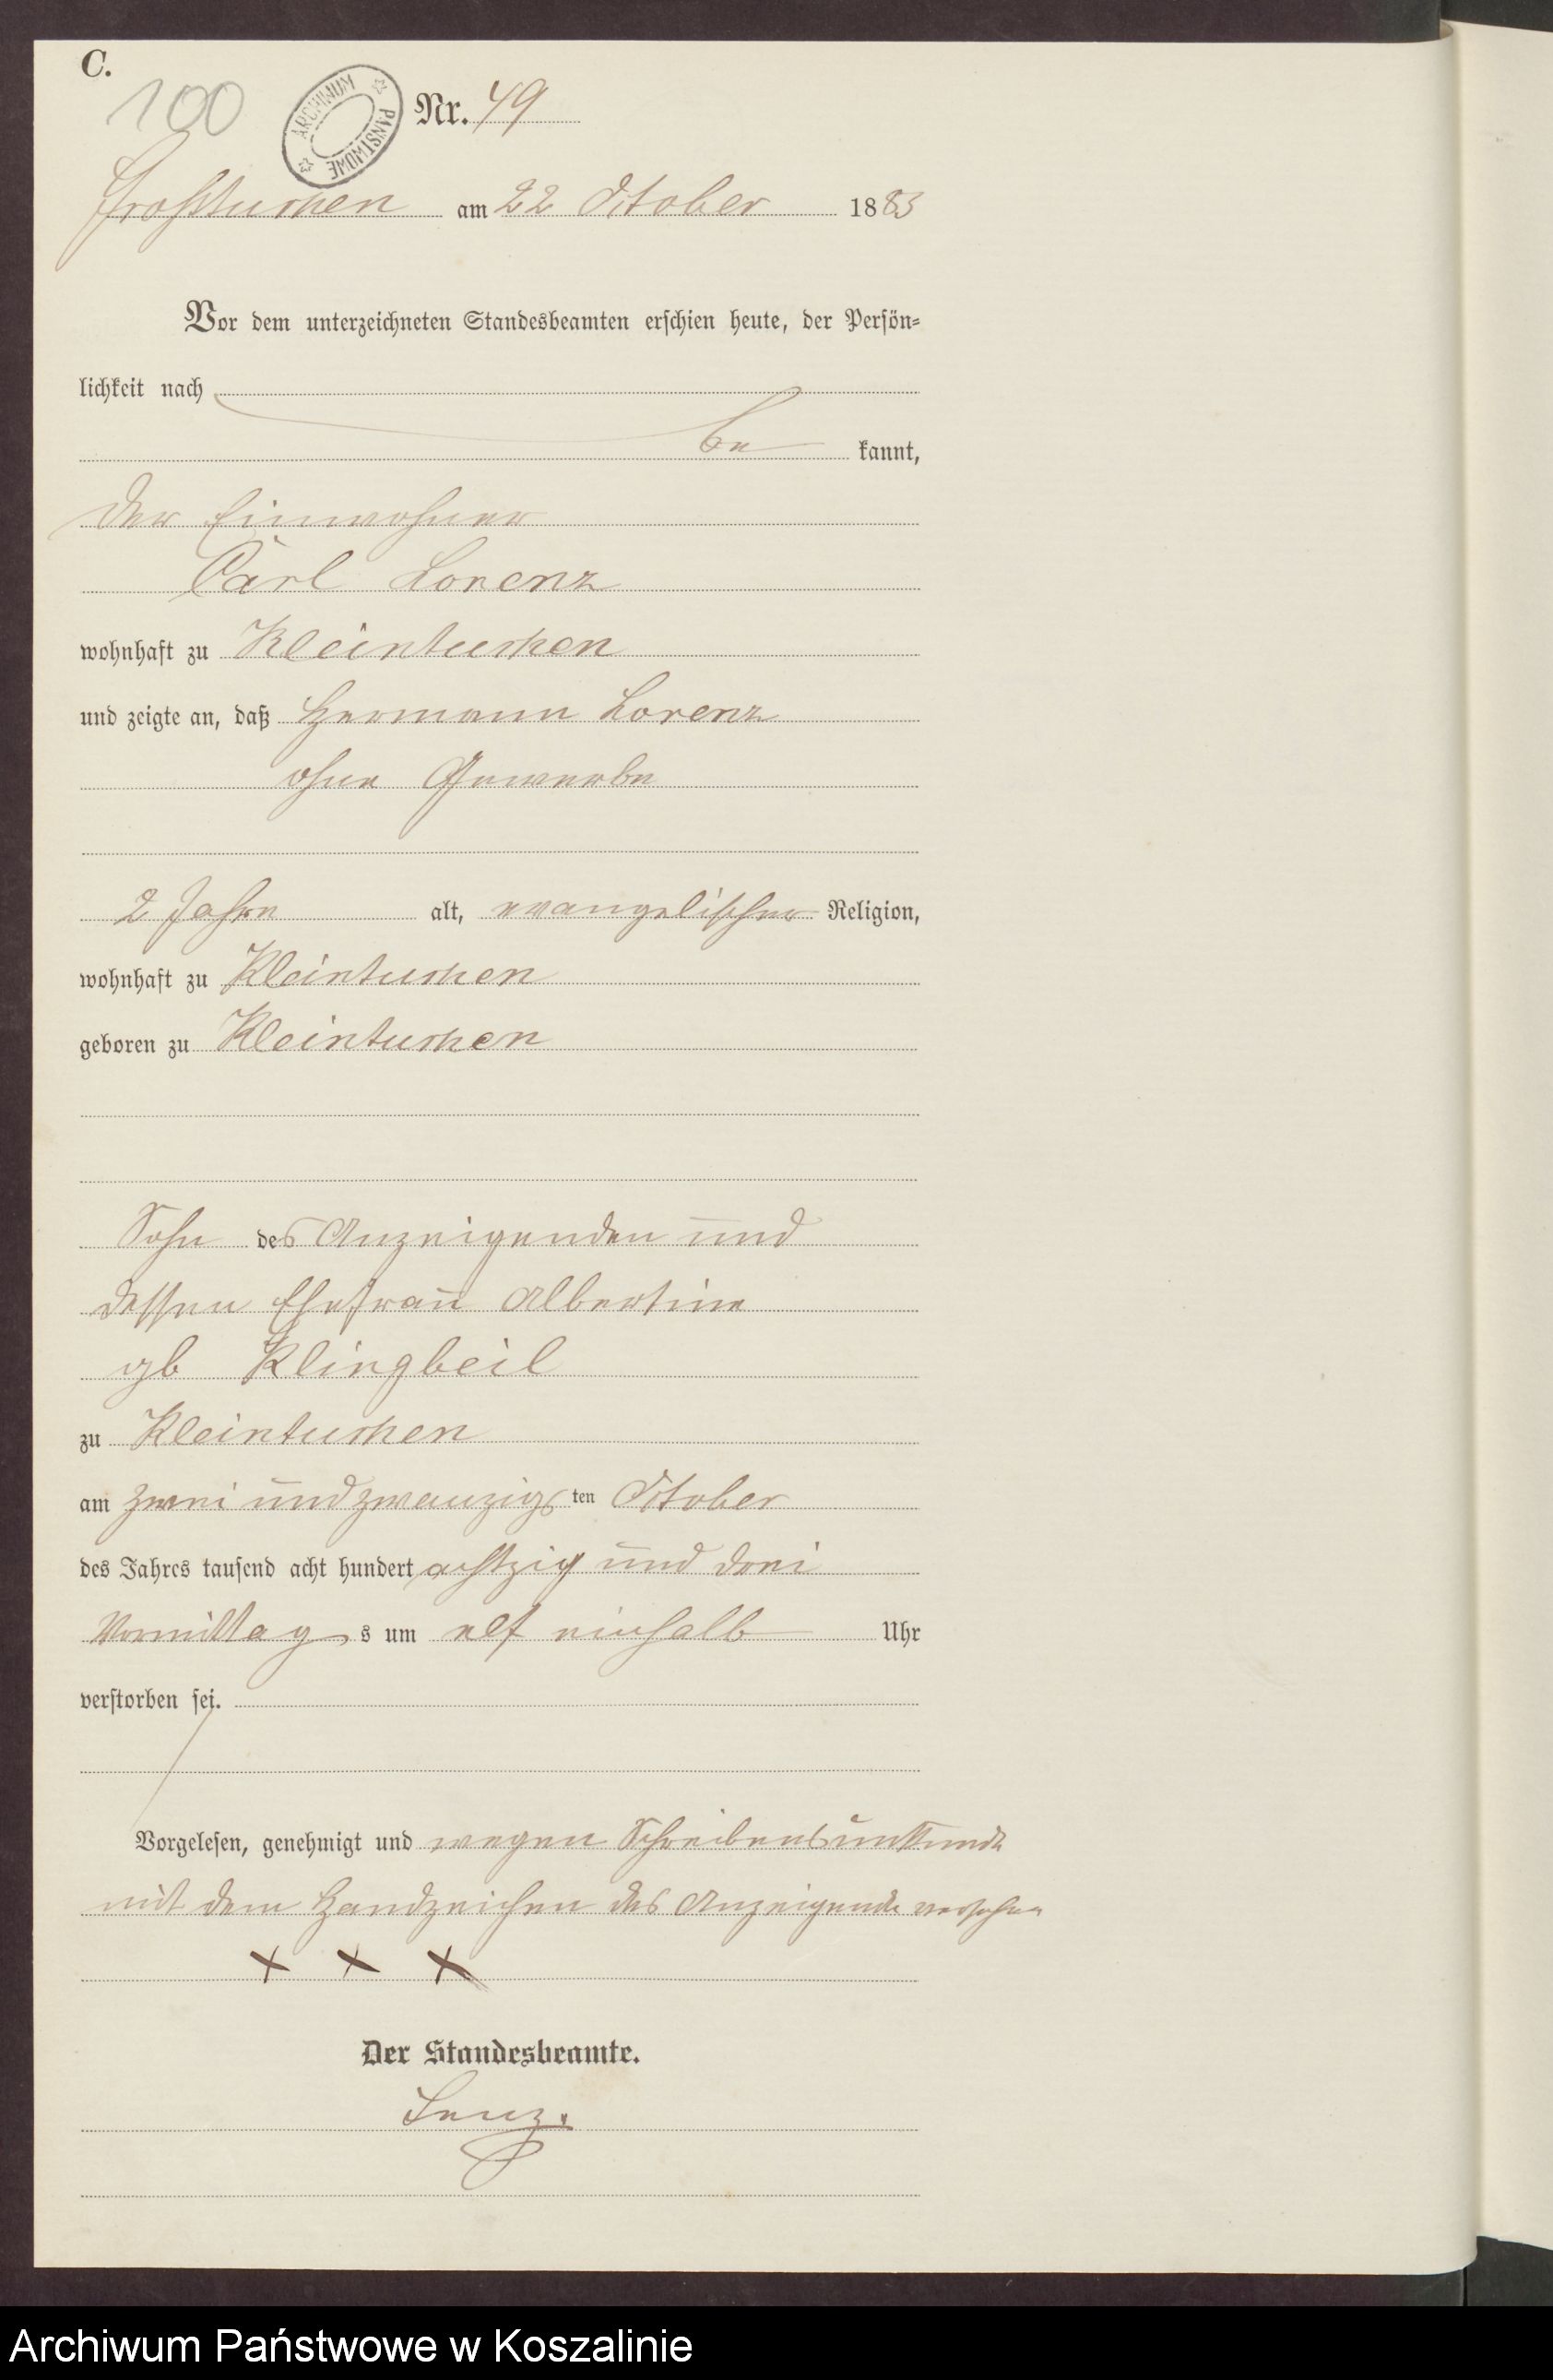 C.
100
ARCHIWUM PAŃSTWOWE
Nr. 49
Großtuchen am 22 October 1883
Vor dem unterzeichneten Standesbeamten erschien heute, der Persön-
lichkeit nach
be kannt,
der Einwohner
Carl Lorenz
wohnhaft zu Kleintuchen
und zeigte an, daß Hermann Lorenz
ohne Gewerbe
2 Jahre alt, evangelischer Religion,
wohnhaft zu Kleintuchen
geboren zu Kleintuchen
Sohn des Anzeigenden und
dessen Ehefrau Albertine
gb Klingbeil
zu Kleintuchen
am zwei und zwanzigsten October
des Jahres tausend acht hundert achtzig und drei
Vormittags um elf einhalb Uhr
verstorben sei.
Vorgelesen, genehmigt und wegen Schreibensunkunde
mit dem Handzeichen des Anzeigende versehen
x x x
Der Standesbeamte.
Lenz.
Archiwum Państwowe w Koszalinie